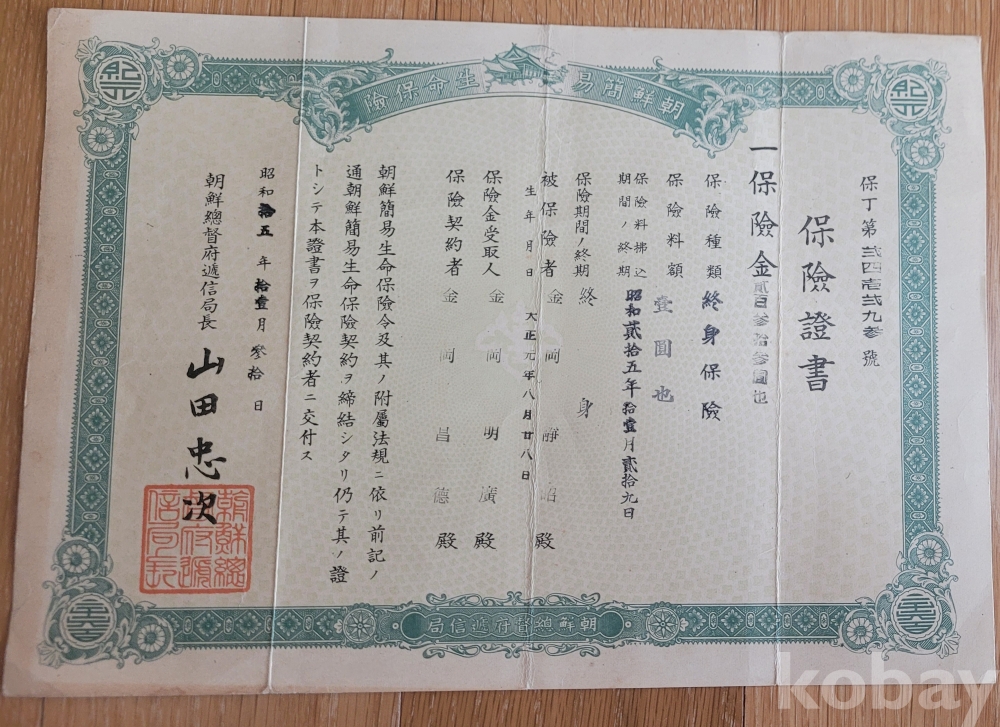 朝鮮簡易生命保險
保丁第弐四壱弐九参號
保險證書
一保險金貳百参拾参圓也
保險種類 終身保險
保險料額 壹圓也
保險料拂込期間ノ終期 昭和貳拾五年拾壹月貳拾九日
保險期間ノ終期 終身
被保險者 金岡靜昭殿
生年月日 大正元年八月廿八日
保險金受取人 金岡明廣殿
保險契約者 金岡昌德殿
朝鮮簡易生命保險令及其ノ附屬法規ニ依リ前記ノ
通朝鮮簡易生命保險契約ヲ締結シタリ仍テ其ノ證
トシテ本證書ヲ保險契約者ニ交付ス
昭和拾五年拾壹月参拾日
朝鮮總督府遞信局長 山田忠次
朝鮮總督府遞信局長
朝鮮總督府遞信局
kobay